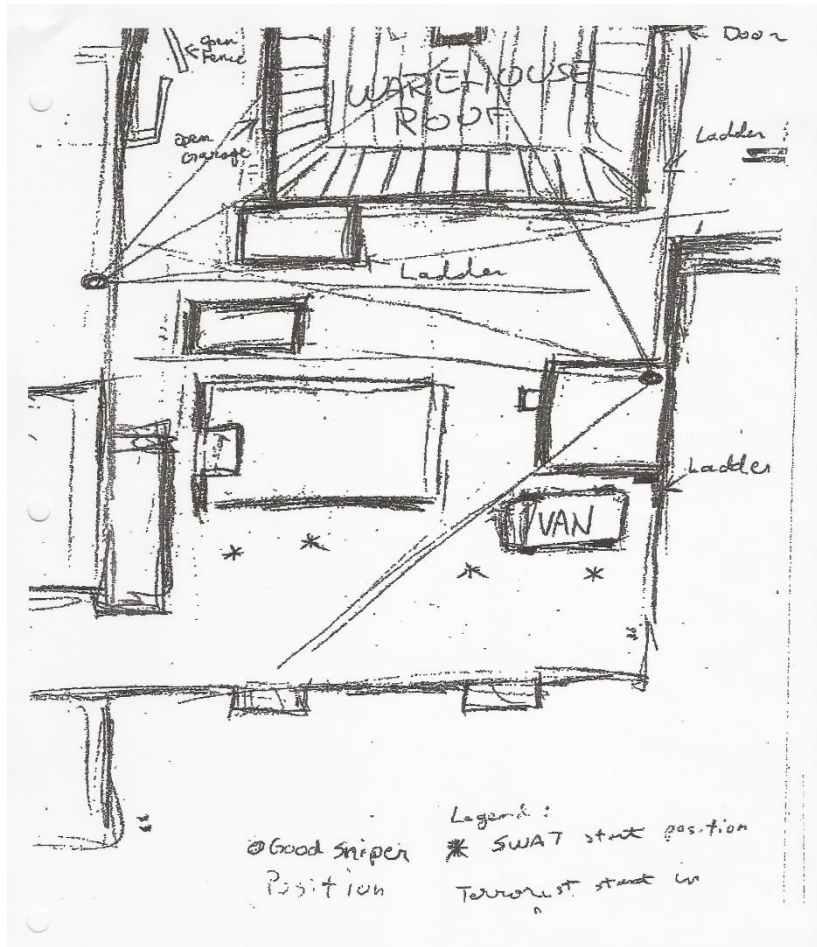 open
Fence
Door
WAREHOUSE
ROOF
Ladder
open
Garage
Ladder
Ladder
VAN
Legend :
Good sniper
Position
* SWAT start position
Terrorist start in